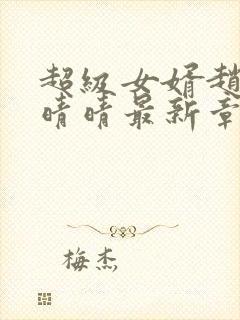 超級女婿趙
晴晴最新章
梅杰